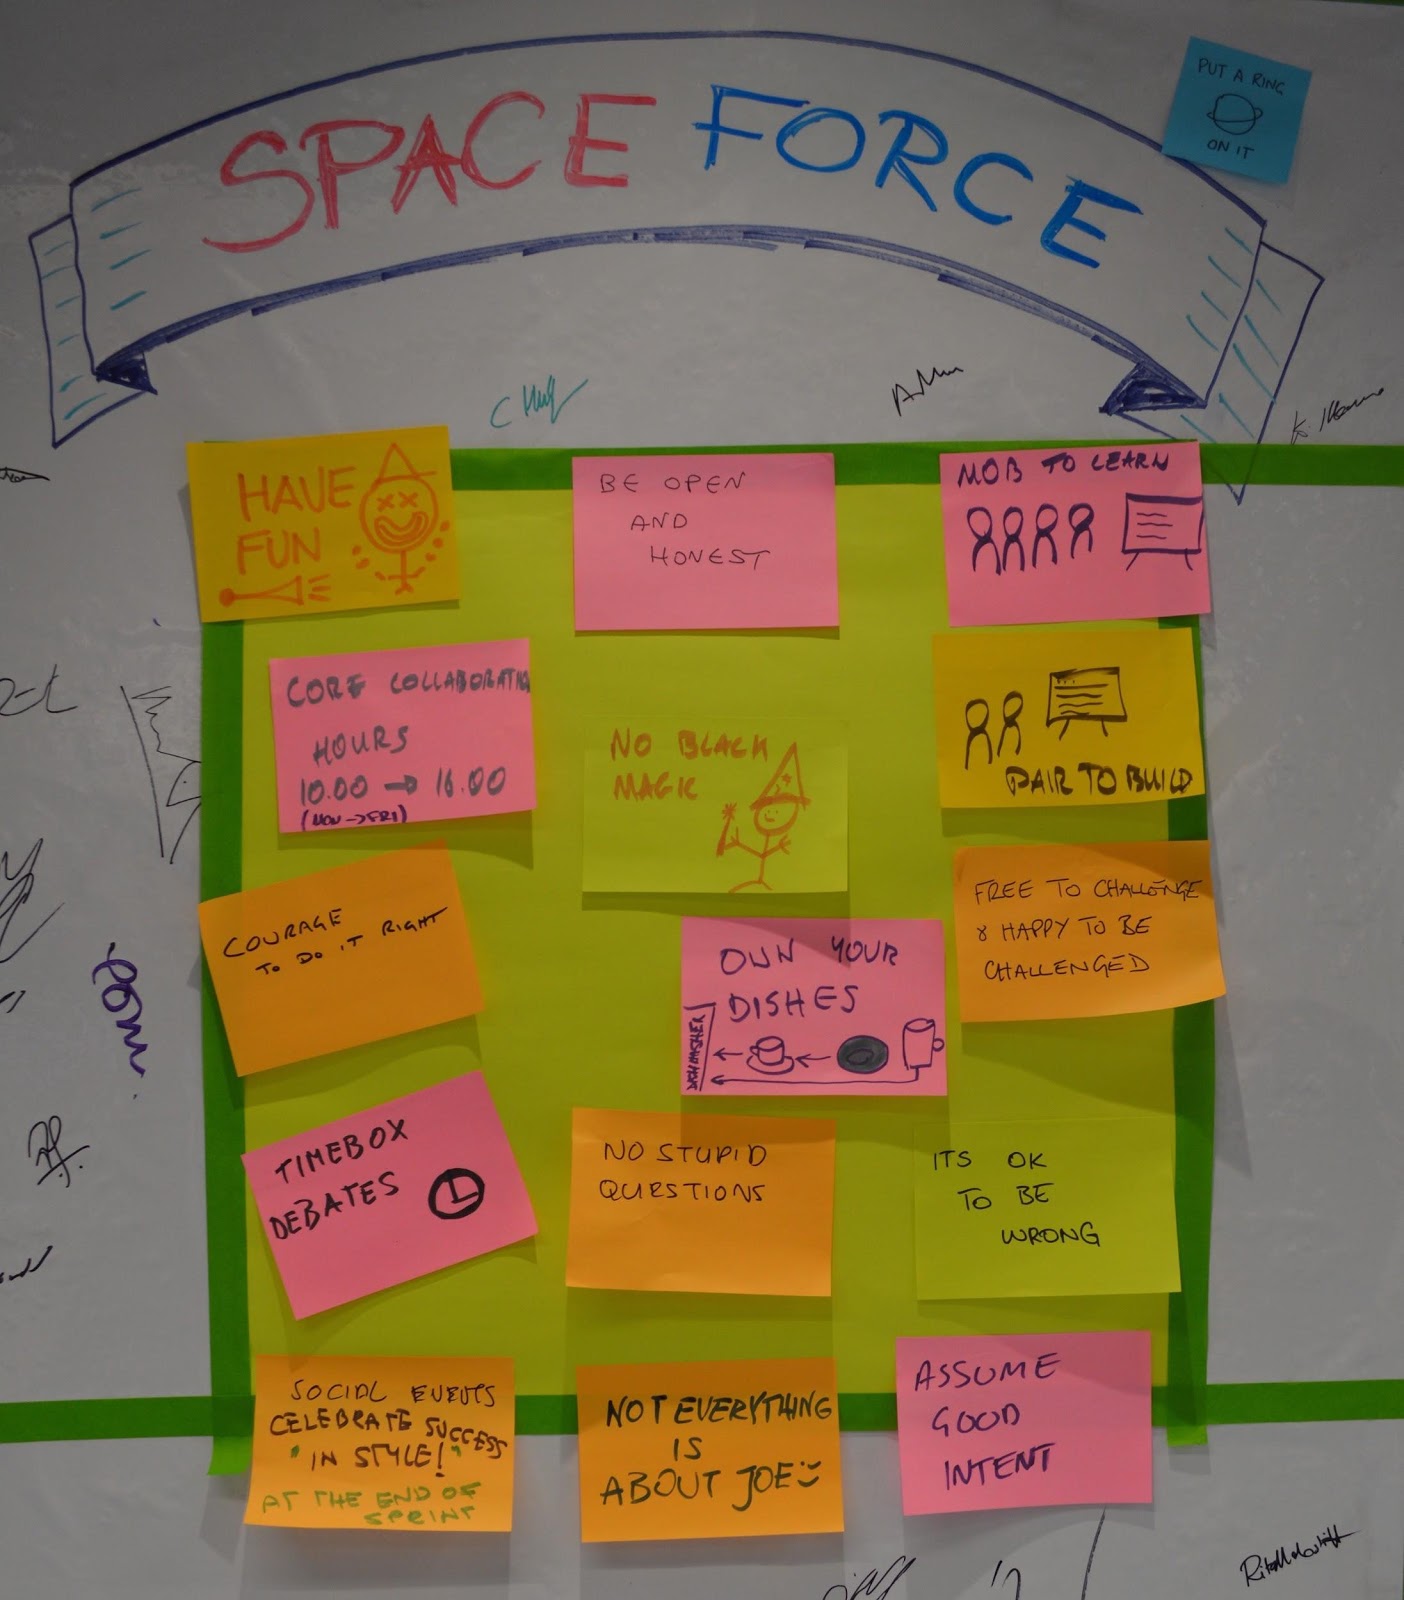 SPACE FORCE
PUT A RING
ON IT
HAVE
FUN
BE OPEN
AND
HONEST
MOB TO LEARN
CORE COLLABORATION
HOURS
10.00 → 16.00
(MON → FRI)
NO BLACK
MAGIC
PAIR TO BUILD
COURAGE
TO DO IT RIGHT
OWN YOUR
DISHES
DISHWASHER
FREE TO CHALLENGE
& HAPPY TO BE
CHALLENGED
TIMEBOX
DEBATES
NO STUPID
QUESTIONS
ITS OK
TO BE
WRONG
SOCIAL EVENTS
CELEBRATE SUCCESS
"IN STYLE!"
AT THE END OF
SPRINT
NOT EVERYTHING
IS
ABOUT JOE
ASSUME
GOOD
INTENT